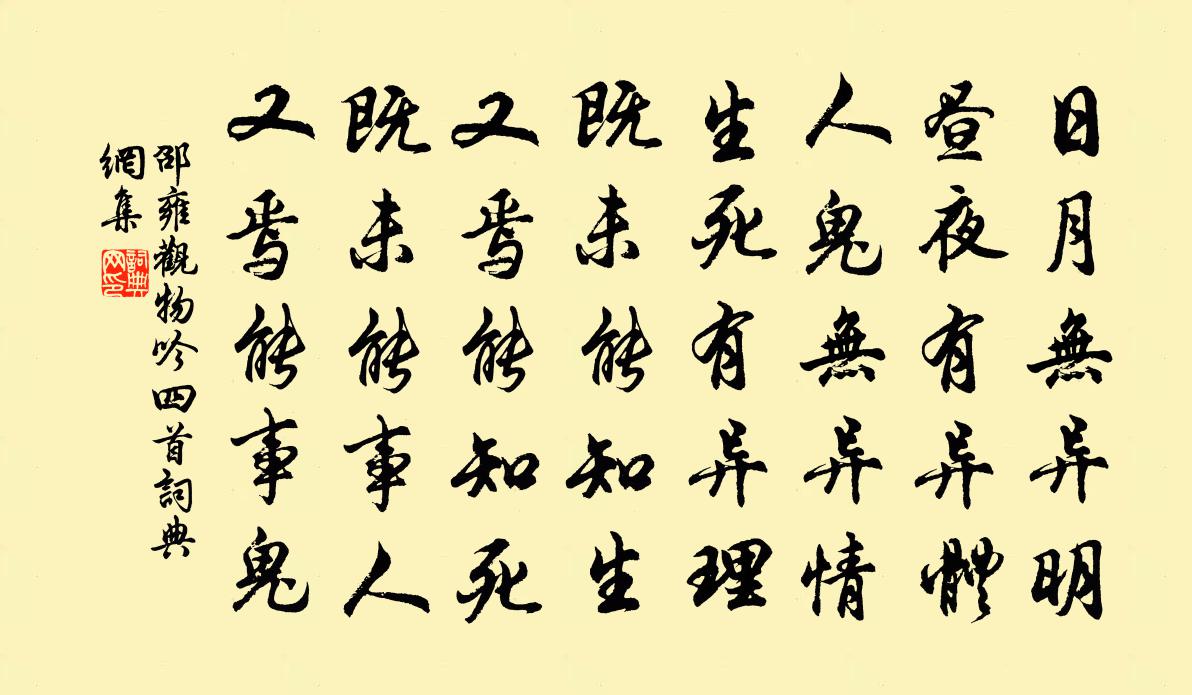 日月無异明
昼夜有异體
人鬼無异情
生死有异理
既未能知生
又焉能知死
既未能事人
又焉能事鬼
邵雍觀物吟四首詞典
網集
詞典
网印